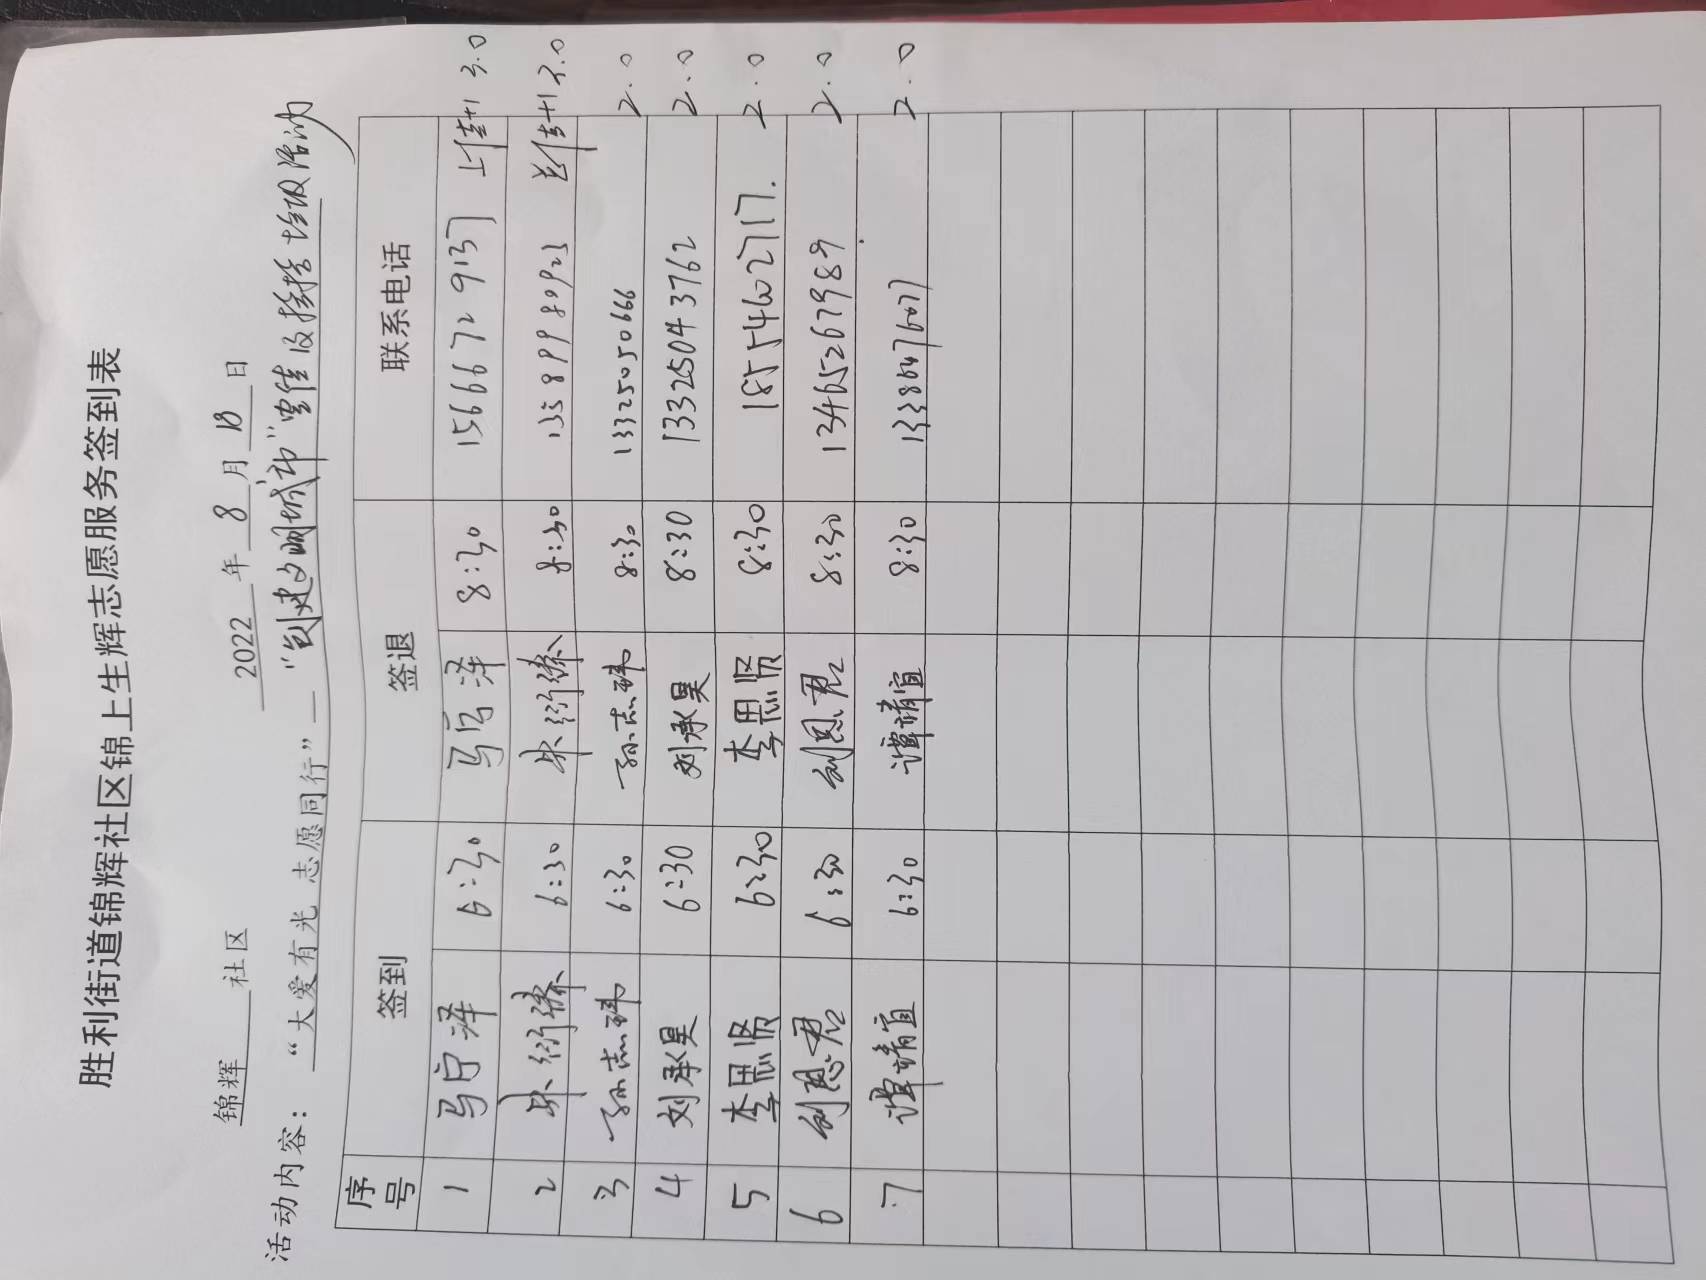 胜利街道锦辉社区锦上生辉志愿服务签到表
锦辉 社区 2022 年 8 月 18 日
活动内容： “大爱有光 志愿同行” “创建文明城市”宣传及捡拾垃圾活动
序号 签到 签退 联系电话
1 马宁泽 6:30 马宁泽 8:30 15666729137 +1 3.0
2 6:30 8:30 13589980923 +1 3.0
3 孙志玮 6:30 孙志玮 8:30 13325050666 2.0
4 刘承昊 6:30 刘承昊 8:30 13325043762 2.0
5 李思贤 6:30 李思贤 8:30 18554602717. 2.0
6 刘恩君 6:30 刘恩君 8:30 13465267989 2.0
7 谭靖宜 6:30 谭靖宜 8:30 13386476077 2.0